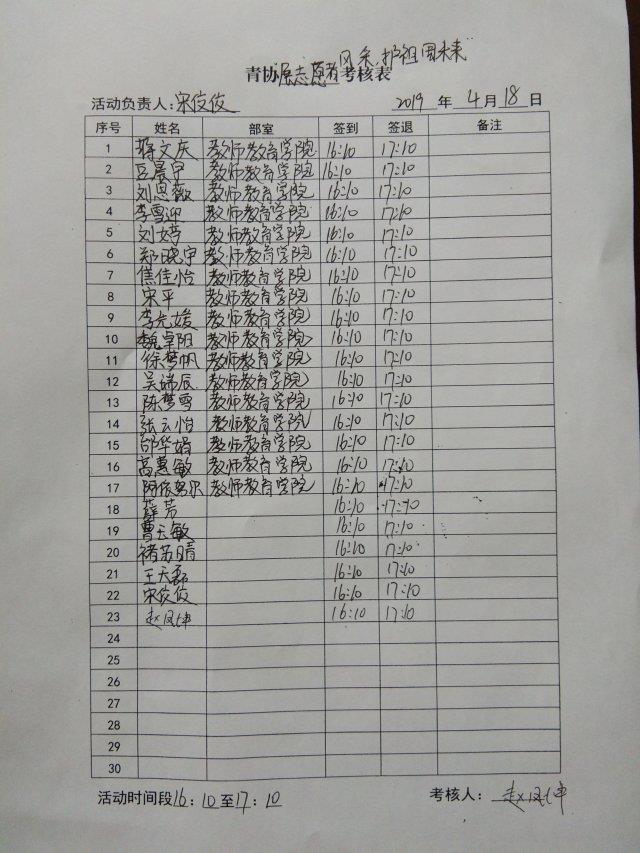 风采,护祖国未来
青协展志愿者考核表
活动负责人:宋俊俊 2019年4月18日
序号 姓名 部室 签到 签退 备注
1 蒋文庆 教师教育学院 16:10 17:10
2 豆晨宇 教师教育学院 16:10 17:10
3 刘恩薇 教师教育学院 16:10 17:10
4 李雪迎 教师教育学院 16:10 17:10
5 刘婷 教师教育学院 16:10 17:10
6 郑晓宇 教师教育学院 16:10 17:10
7 焦佳怡 教师教育学院 16:10 17:10
8 宋平 教师教育学院 16:10 17:10
9 李光媛 教师教育学院 16:10 17:10
10 魏卓阳 教师教育学院 16:10 17:10
11 徐梦帆 教师教育学院 16:10 17:10
12 吴端辰 教师教育学院 16:10 17:10
13 陈梦雪 教师教育学院 16:10 17:10
14 张云怡 教师教育学院 16:10 17:10
15 邰华娟 教师教育学院 16:10 17:10
16 高慧敏 教师教育学院 16:10 17:10
17 阿依努尔 教师教育学院 16:10 17:10
18 薛芳 16:10 17:10
19 曹天敏 16:10 17:10
20 褚苏晴 16:10 17:10
21 王天磊 16:10 17:10
22 宋俊俊 16:10 17:10
23 赵凤坤 16:10 17:10
24
25
26
27
28
29
30
活动时间段16:10至17:10 考核人:赵凤坤